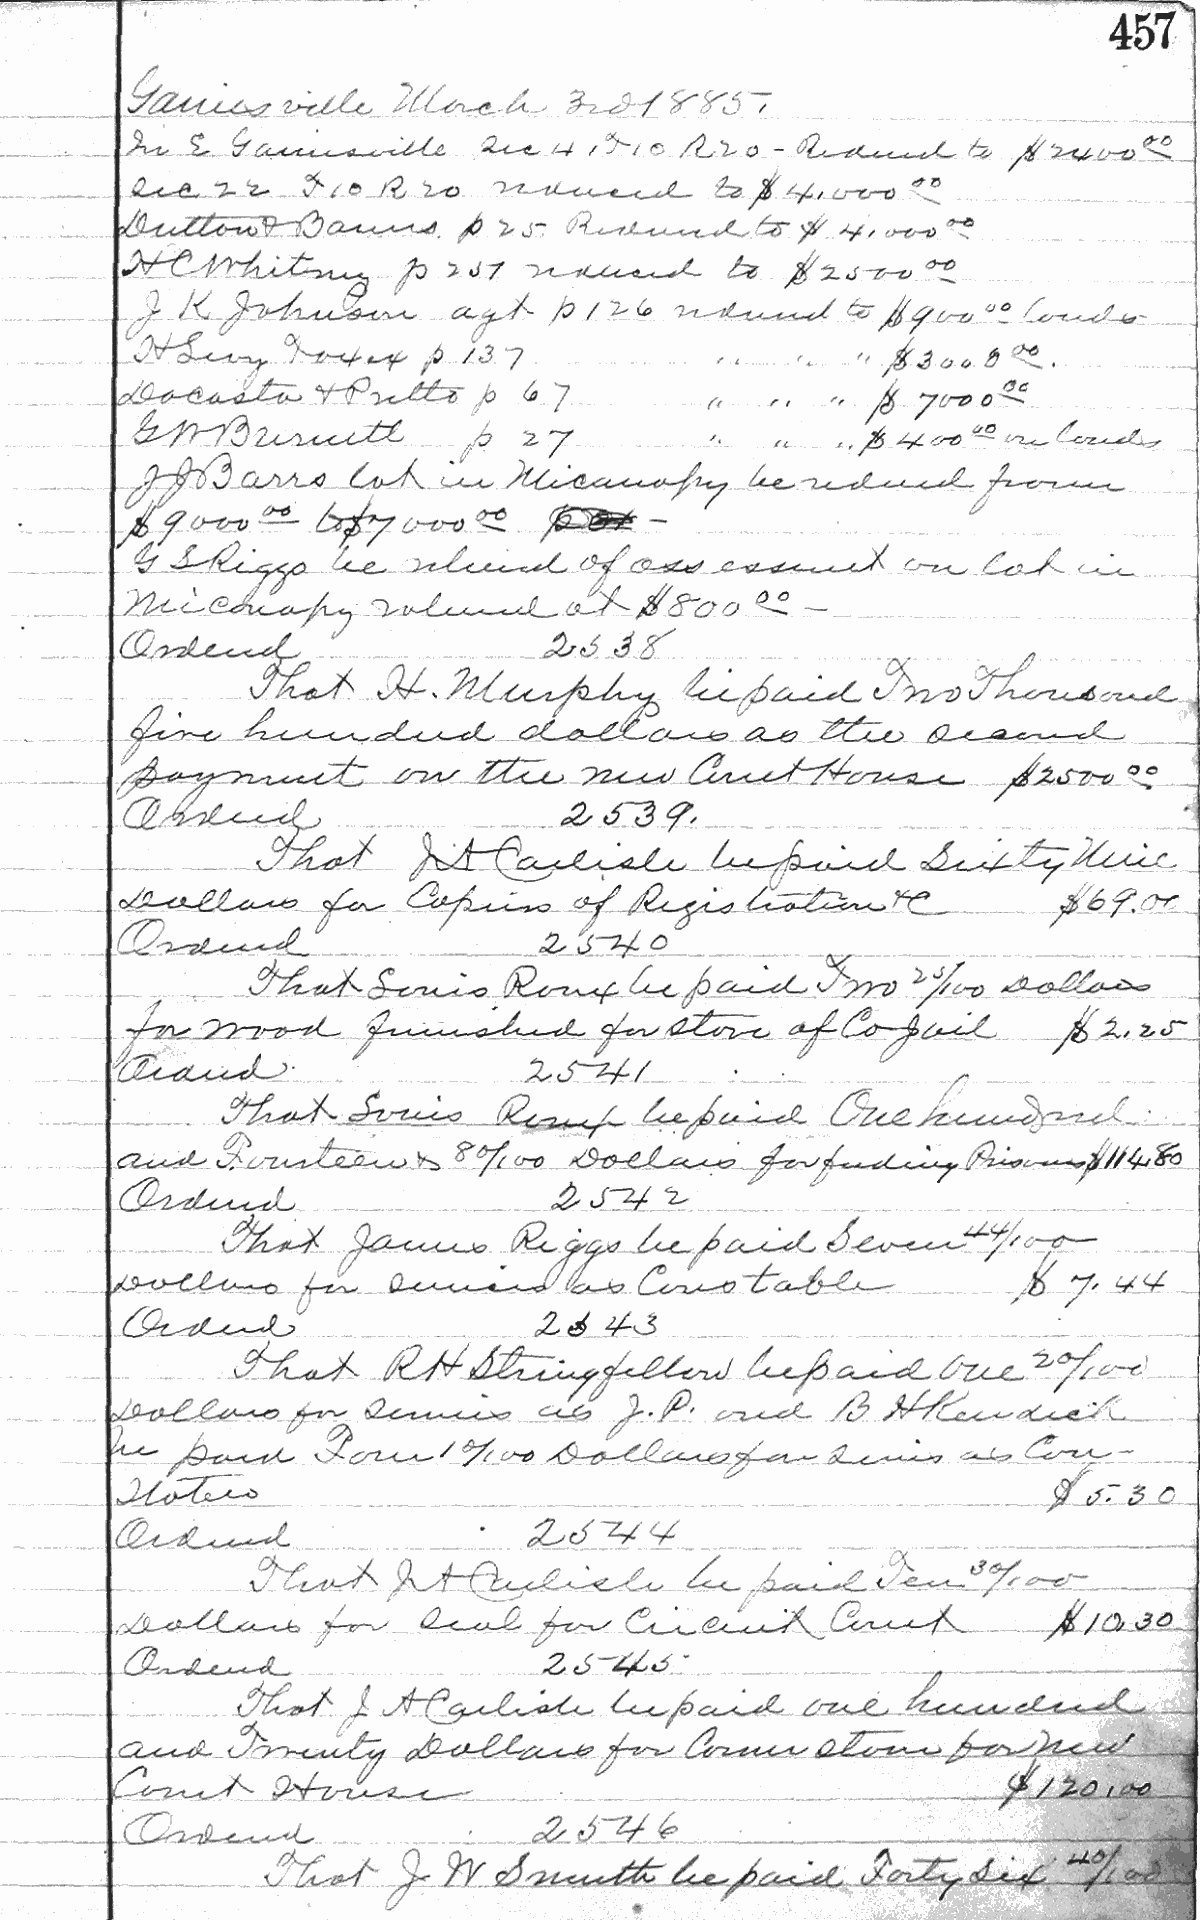 457
Gainesville March 3rd 1885.
In E Gainesville Sec 4, T10 R20 - Reduced to $2400 00
Sec 22 T10 R20 reduced to $4,000 00
Dutton & Barnes p 25 Reduced to $4,000 00
H C Whitney p 257 reduced to $2500 00
J K Johnson agt p 126 reduced to $900 00 lands
H Levy p 137 " " " $3000 00.
Dacosta & Pretto p 67 " " " $7000 00
G W Burnett p 27 " " " $400 00 on lands
J J Barrs lot in Micanopy be reduced from
$9000 00 to $7000 00 -
G S Riggs be relieved of assessment on lot in
Micanopy valued at $800 00 -
Ordered 2538
That H. Murphy be paid Two Thousand
five hundred dollars as the second
payment on the new Court House $2500 00
Ordered 2539.
That J A Carlisle be paid Sixty Nine
Dollars for Copies of Registration &C $69.00
Ordered 2540
That Louis Roux be paid Two 25/100 Dollars
for wood furnished for stove of Co Jail $2.25
Ordered 2541
That Louis Roux be paid One hundred
and Fourteen & 80/100 Dollars for feeding Prisoners $114.80
Ordered 2542
That James Riggs be paid Seven 44/100
Dollars for services as Constable $7.44
Ordered 2543
That R H Stringfellow be paid One 20/100
Dollars for services as J.P. and B H Kendrick
be paid Four 10/100 Dollars for services as Con-
$5.30
Ordered 2544
That J A Carlisle be paid Ten 30/100
Dollars for Seal for Circuit Court $10.30
Ordered 2545
That J A Carlisle be paid one hundred
and Twenty Dollars for Corner stone for New
Court House $120.00
Ordered 2546
That J W Smith be paid Forty Six 40/100